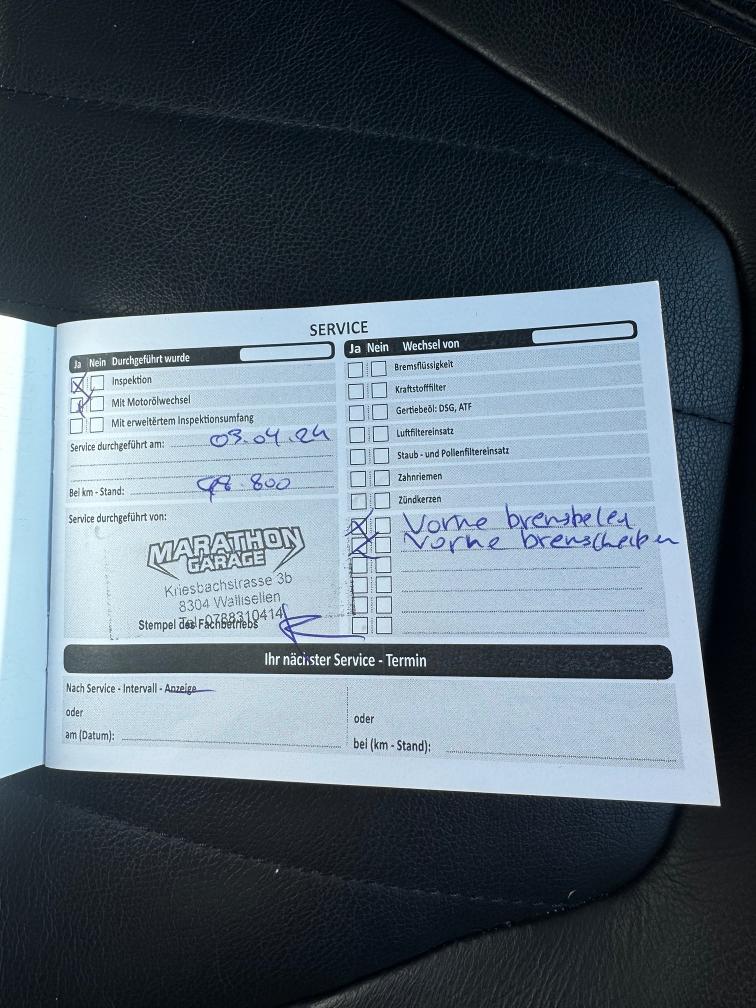 SERVICE
Ja Nein Durchgeführt wurde
Inspektion
Mit Motorölwechsel
Mit erweitertem Inspektionsumfang
Service durchgeführt am: 03.04.24
Bei km - Stand: 98.800
Service durchgeführt von:
MARATHON
GARAGE
Kriesbachstrasse 3b
8304 Wallisellen
Tel. 0788310414
Stempel des Fachbetriebs
Ja Nein Wechsel von
Bremsflüssigkeit
Kraftstofffilter
Gertiebeöl: DSG, ATF
Luftfiltereinsatz
Staub - und Pollenfiltereinsatz
Zahnriemen
Zündkerzen
Vorne
Vorne
Ihr nächster Service - Termin
Nach Service - Intervall - Anzeige
oder
am (Datum):
oder
bei (km - Stand):